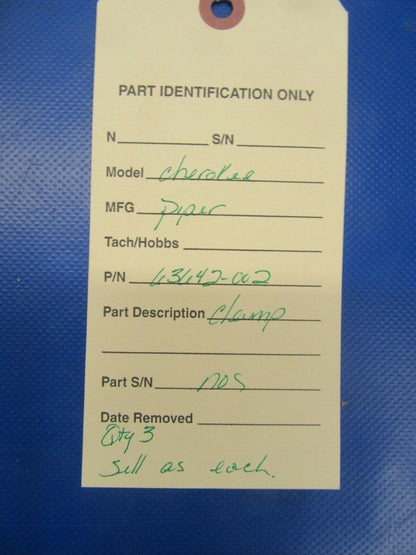 PART IDENTIFICATION ONLY
N S/N
Model cherokee
MFG piper
Tach/Hobbs
P/N 63642-002
Part Description clamp
Part S/N nos
Date Removed
Qty 3
Sell as each.